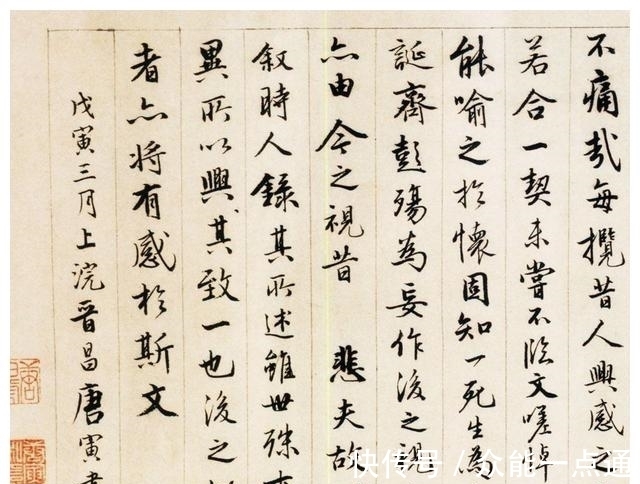 不痛哉每攬昔人興感之
若合一契未嘗不臨文嗟悼
能喻之於懷固知一死生為
誕齊彭殤為妄作後之視
亦由今之視昔 悲夫故
叙時人錄其所述雖世殊
異所以興其致一也後之
者亦將有感於斯文
戊寅三月上浣晉昌唐寅書
快传号/众能一点通